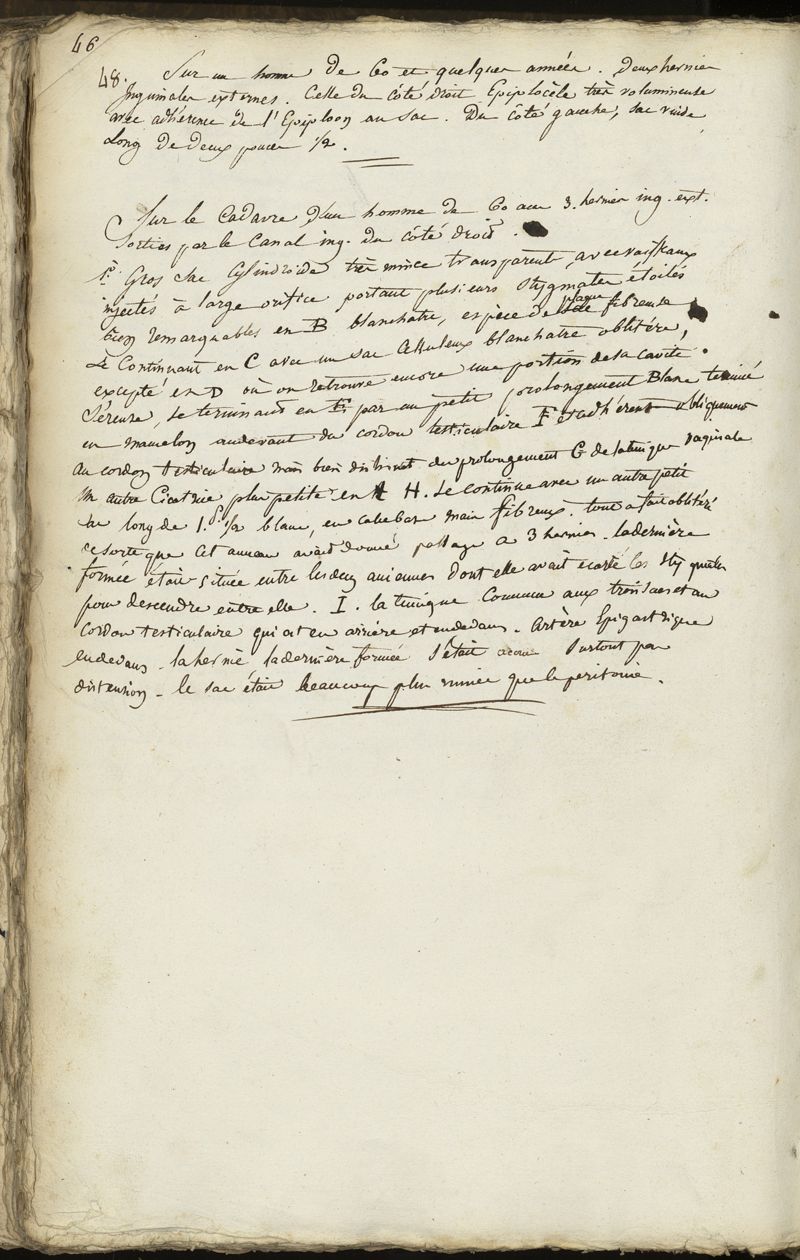 46
48. Sur un homme de 60 et quelques années. Deux hernies
Inguinales externes. Celle du côté droit Epiplocèle très volumineuse
avec adhérence de l'Epiploon au sac. Du côté gauche, sac vuide
Long de deux pouces 1/2.
Sur le Cadavre d'un homme de 60 ans 3. hernies ing. ext.
Sorties par le Canal ing. du côté droit.
1° Gros sac Cylindroïde très mince transparent, avec vaisseaux
injectés à large orifice portant plusieurs stygmates étoilés
bien remarquables en B blanchatre, espèce de plaque fibreuse
se Continuant en C avec un sac Celluleux blanchatre oblitéré,
excepté en D où on retrouve encore une portion de sa cavité
Séreuse, se terminant en E par un petit prolongement Blanc terminé
en mamelon audevant du cordon testiculaire F et adhérent obliquement
au cordon testiculaire mais bien distinct du prolongement G de la tunique vaginale
Un autre Cicatrice plus petite en H. se continue avec un autre petit
sac long de 1.p 1/2 blanc, en calebasse mais fibreux. tout a fait oblitéré
de sorte que Cet anneau avait donné passage a 3 hernies. la dernière
formée était située entre les deux anciennes dont elle avait écarté les stygmates
pour descendre entre elle. I. la tunique Commune aux trois sacs et au
Cordon testiculaire qui est en arrière et en dedans. Artère Epigastrique
en dedans. la hernie la dernière formée s'était Surtout par
distension. le sac était beaucoup plus mince que le peritoine.